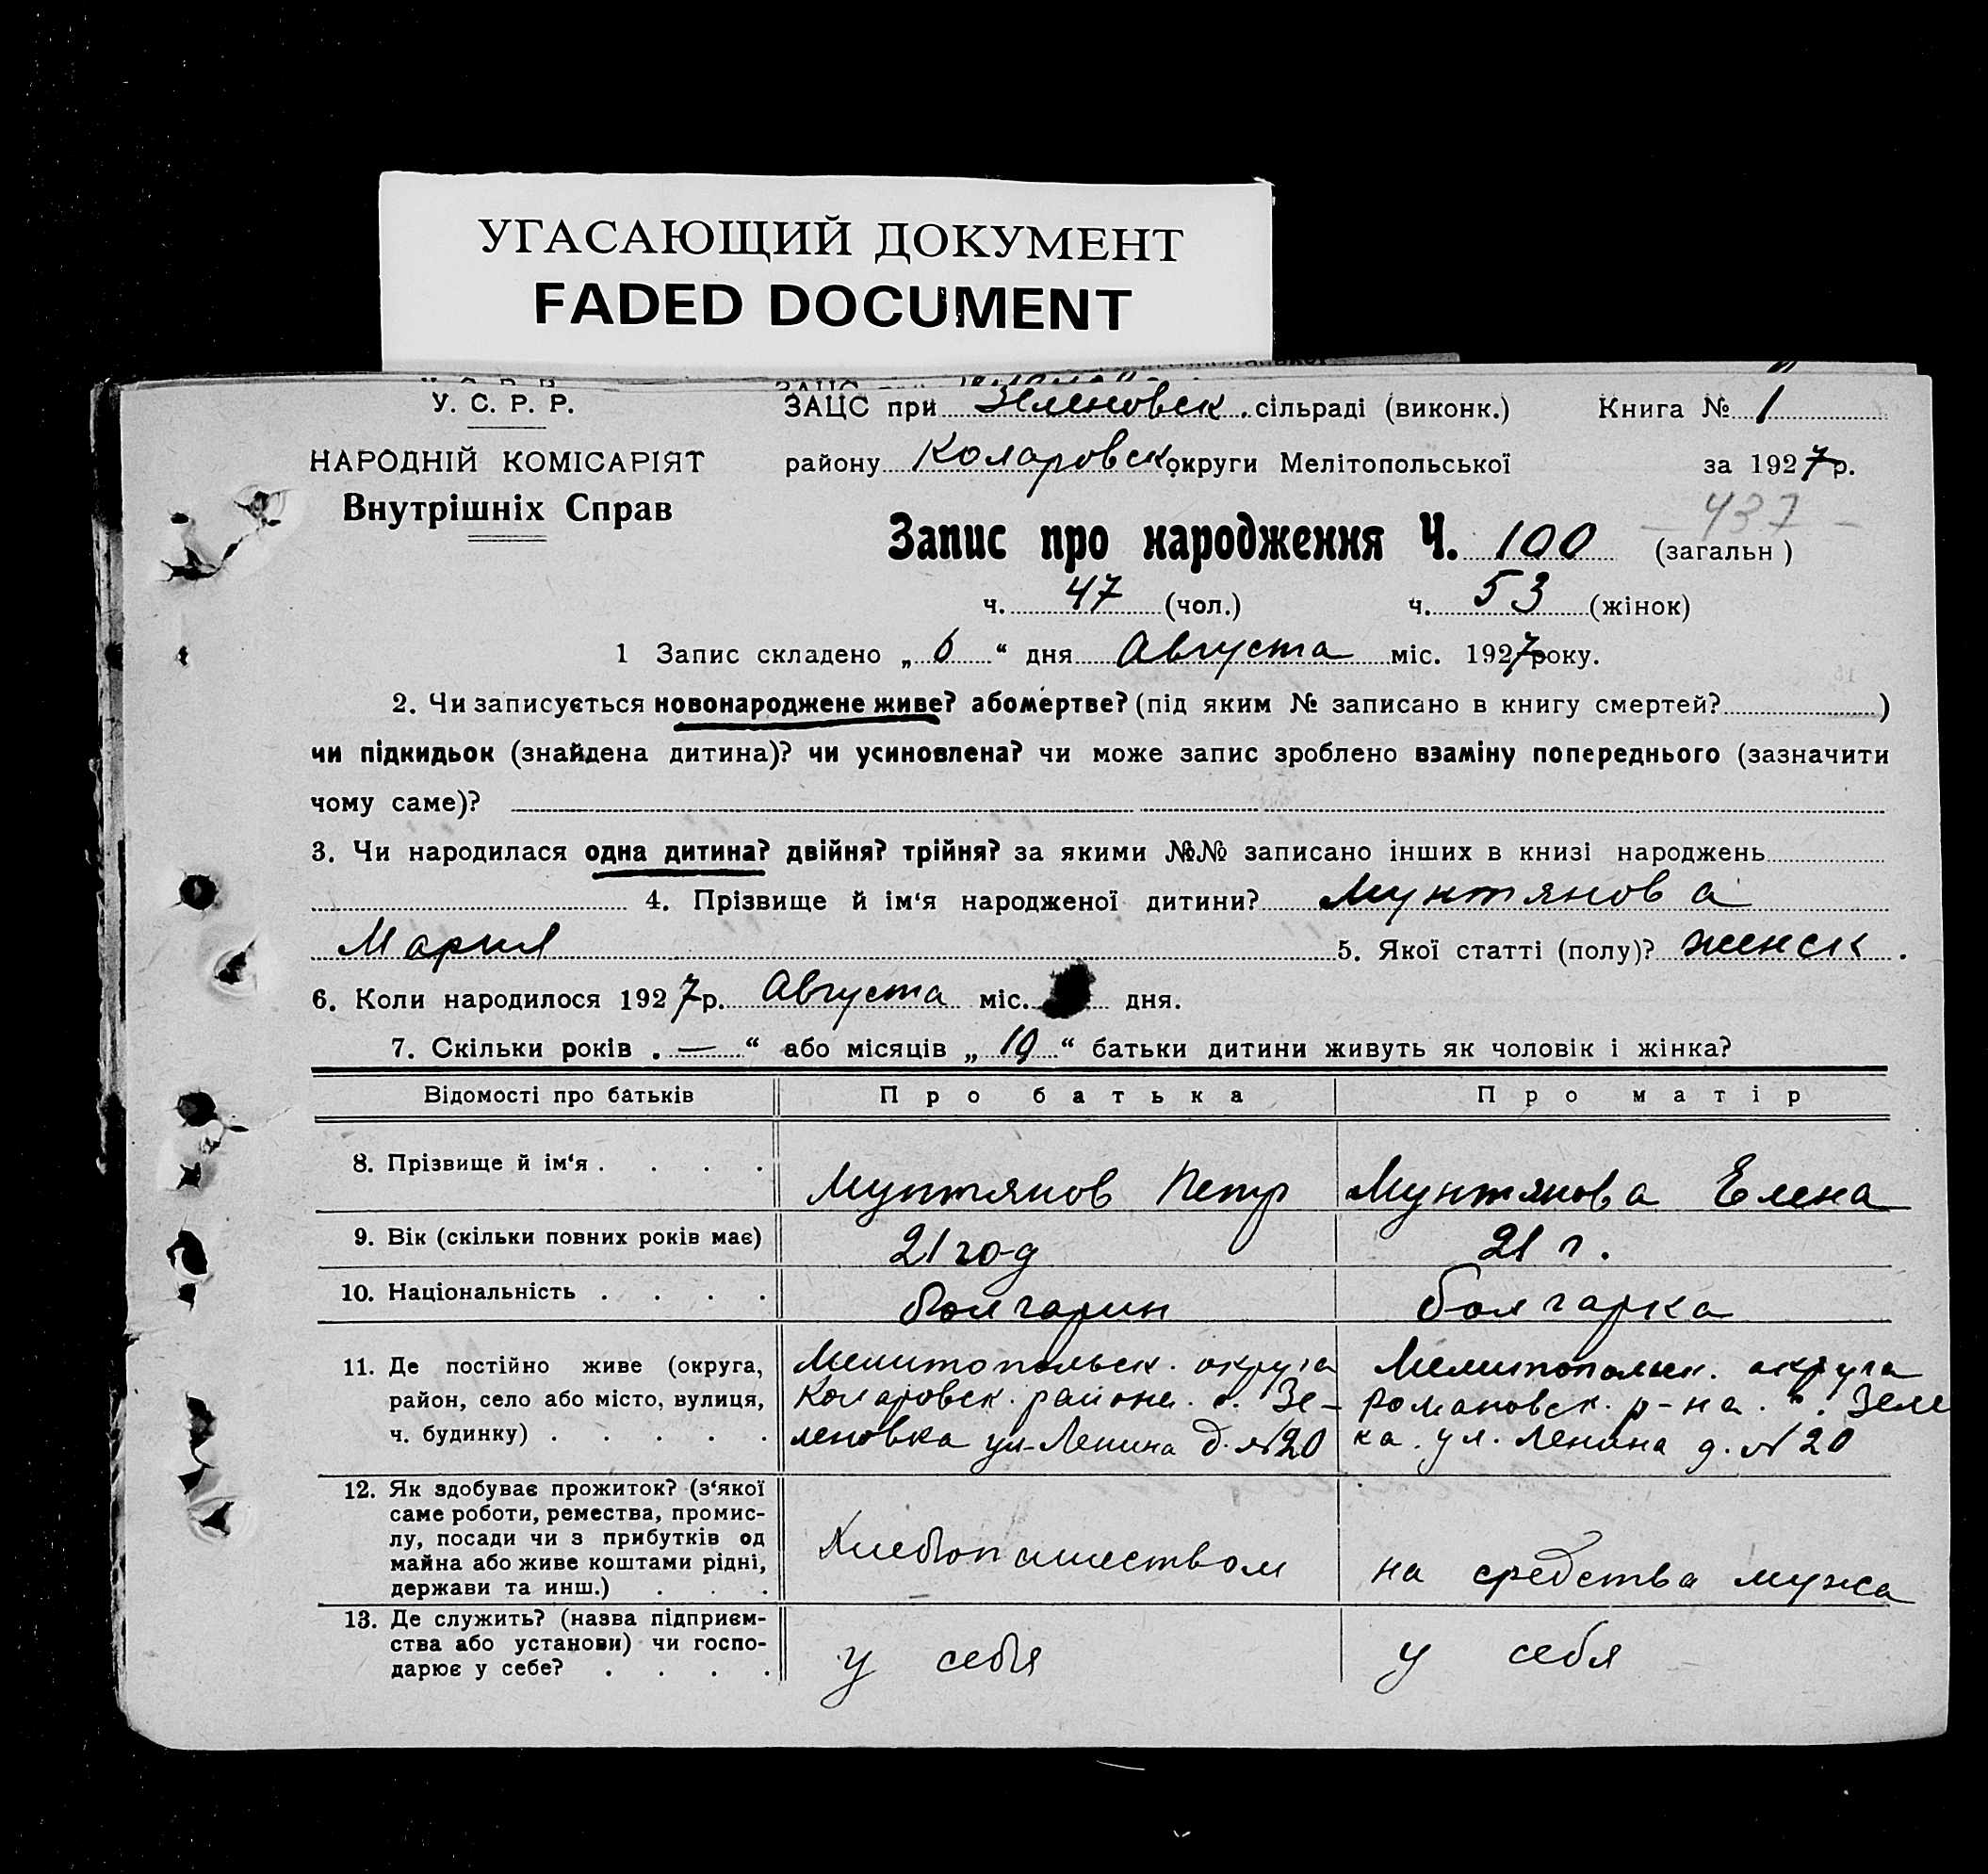 УГАСАЮЩИЙ ДОКУМЕНТ
FADED DOCUMENT
У. С. Р. Р.
НАРОДНІЙ КОМІСАРІЯТ
Внутрішніх Справ
ЗАЦС при Зеленовск. сільраді (виконк.) Книга № 1
району Коларовск округи Мелітопольської за 1927 р.
437
Запис про народження Ч. 100 (загальн )
ч. 47 (чол.) ч. 53 (жінок)
1 Запис складено „ 6 “ дня Августа міс. 1927 року.
2. Чи записується новонароджене живе? або мертве? (під яким № записано в книгу смертей? )
чи підкидьок (знайдена дитина)? чи усиновлена? чи може запис зроблено взаміну попереднього (зазначити
чому саме)?
3. Чи народилася одна дитина? двійня? трійня? за якими №№ записано інших в книзі народжень
4. Прізвище й ім‘я народженої дитини? Мунтянова
Мария 5. Якої статті (полу)? женск.
6. Коли народилося 1927 р. Августа міс. дня.
7. Скільки років . — “ або місяців „ 10 “ батьки дитини живуть як чоловік і жінка?
Відомості про батьків Про батька Про матір
8. Прізвище й ім‘я . . . . Мунтянов Петр Мунтянова Елена
9. Вік (скільки повних років має) 21 год 21 г.
10. Національність . . . . болгарин болгарка
11. Де постійно живе (округа, район, село або місто, вулиця, ч. будинку) . . . . .
Мелитопольск. округа
Коларовск. района. с. Зе-
леновка ул. Ленина д. №20
Мелитопольск. округа
Романовск. р-на. с. Зеле
ка. ул. Ленина д. №20
12. Як здобуває прожиток? (з‘якої
саме роботи, ремества, промис-
лу, посади чи з прибутків од
майна або живе коштами рідні,
держави та инш.) . . .
Хлебопашеством на средства мужа
13. Де служить? (назва підприєм-
ства або установи) чи госпо-
дарює у себе? . . . .
у себя у себя